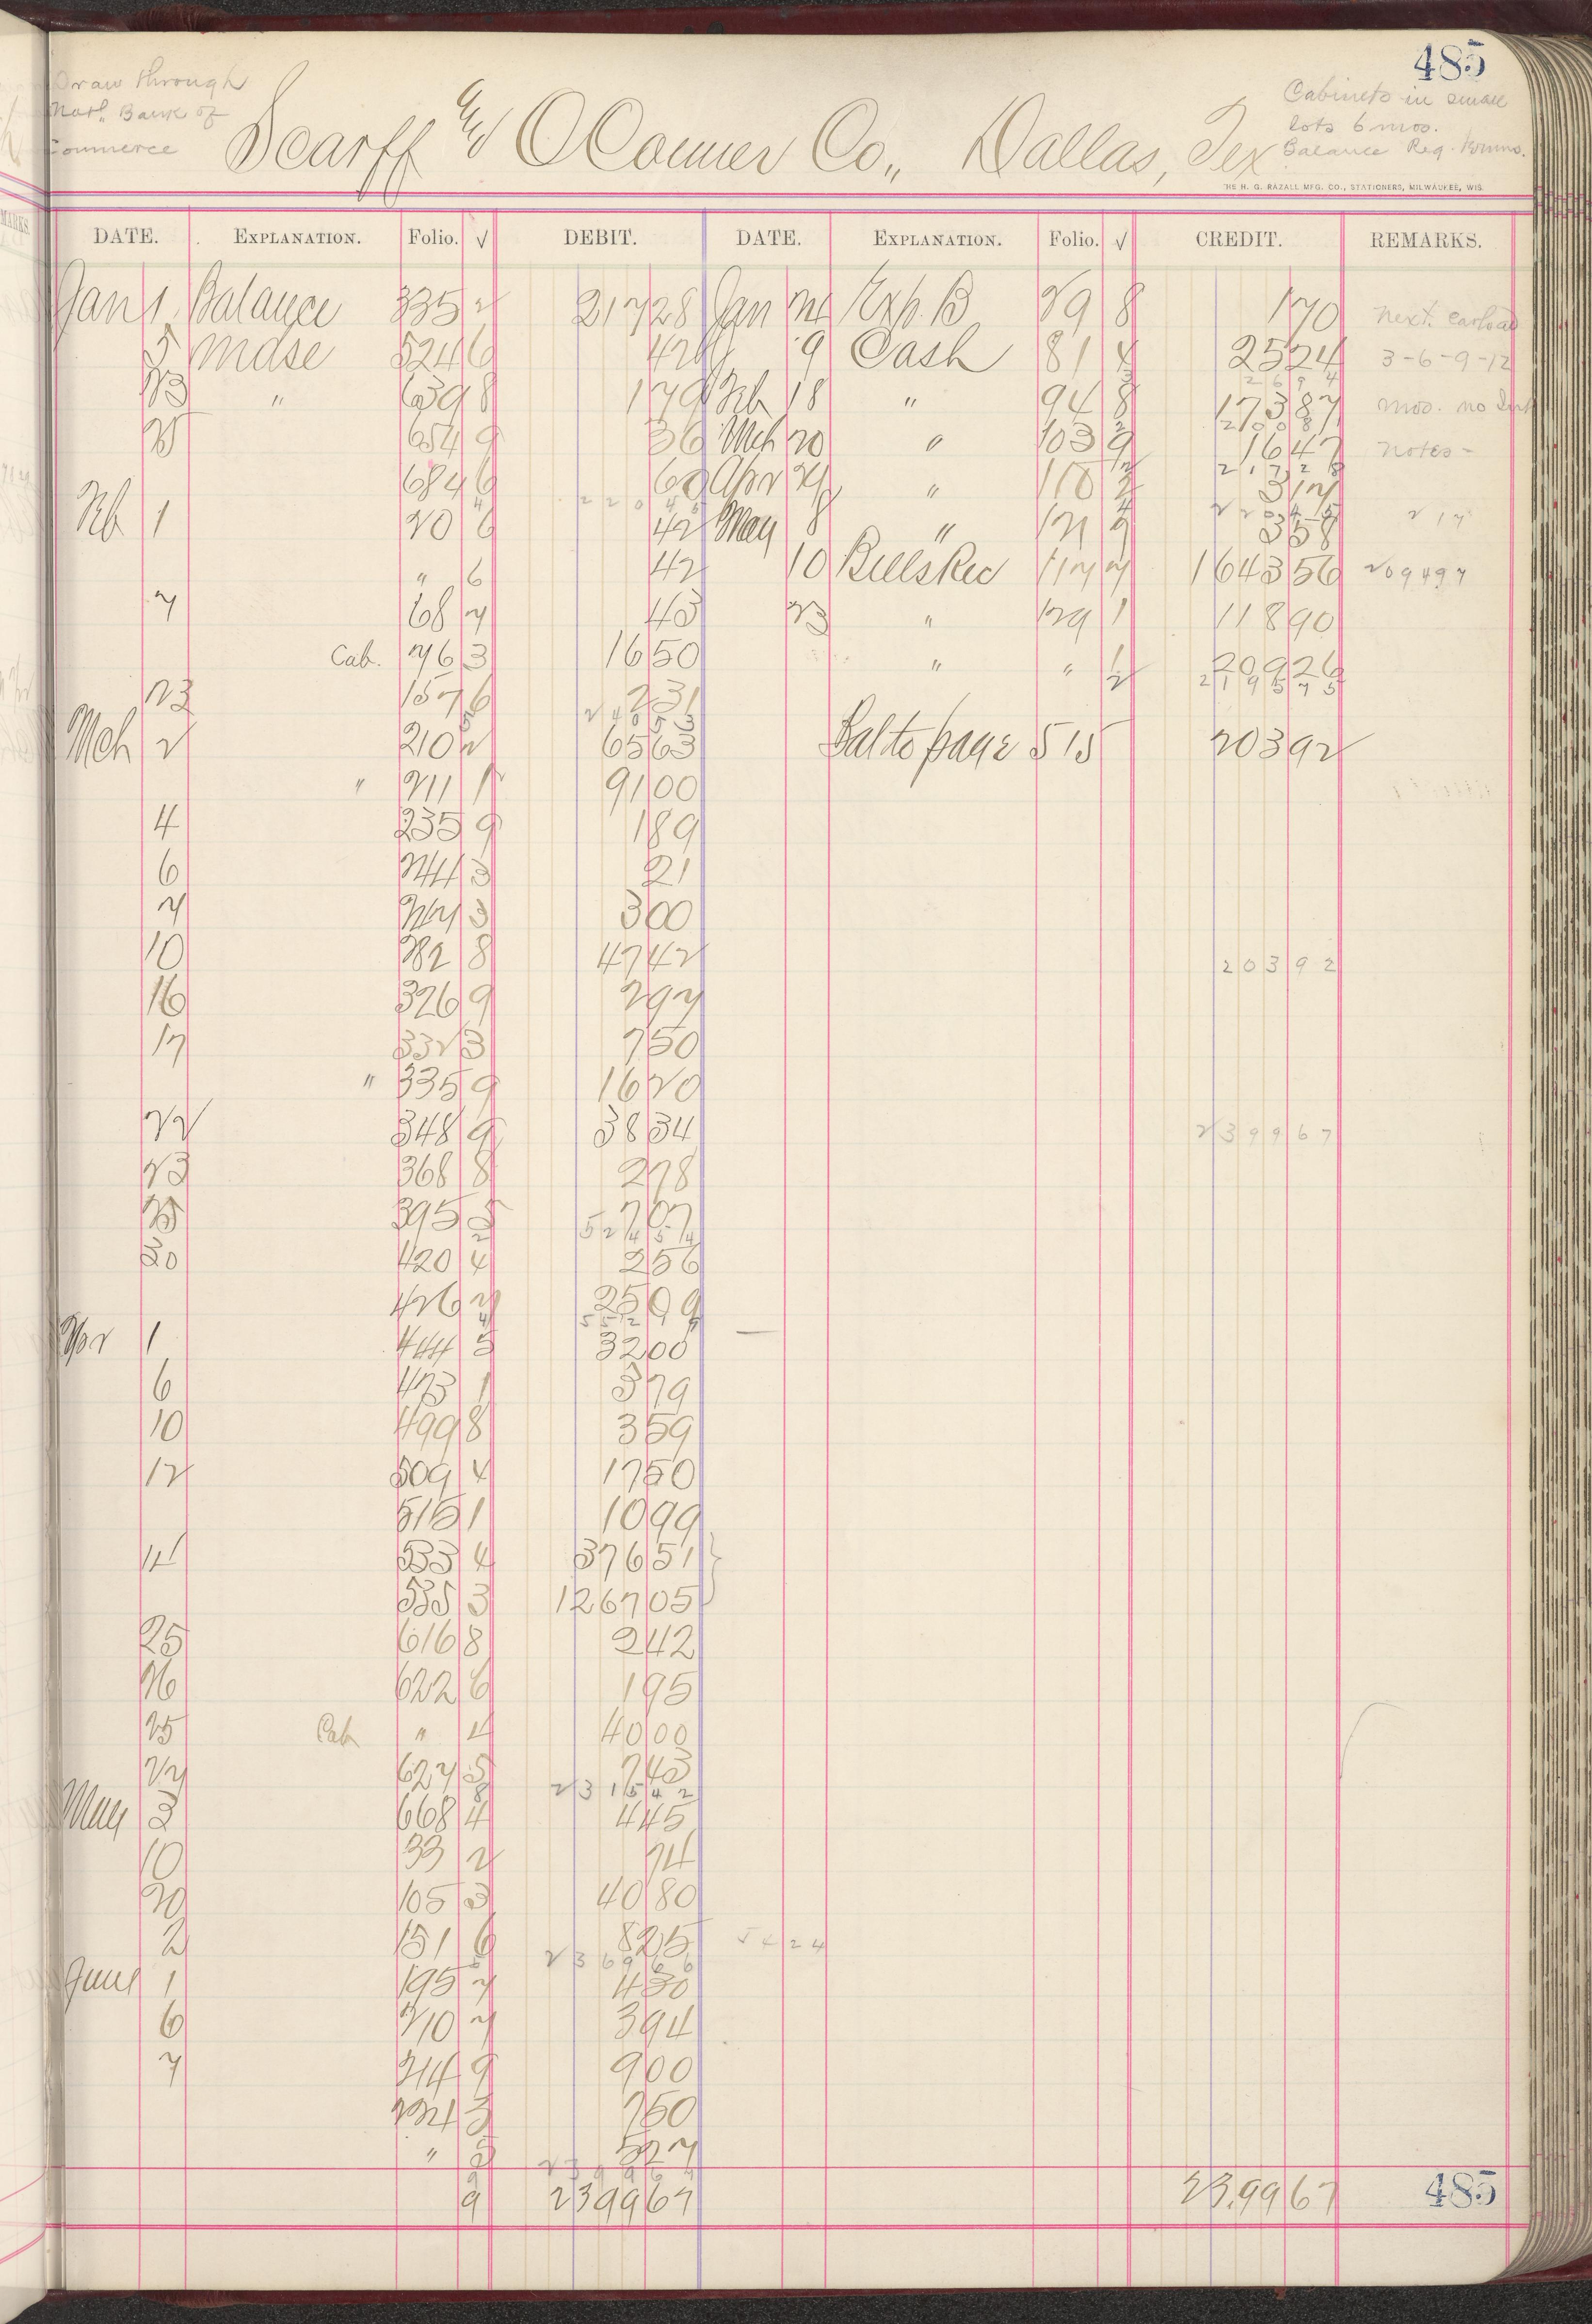 485
Draw through
Natl. Bank of
Commerce
Scarff & OConner Co., Dallas, Tex
Cabinets in small
lots 6 mos.
Balance Reg.
THE H. G. RAZALL MFG. CO., STATIONERS, MILWAUKEE, WIS.
DATE. EXPLANATION. Folio. √ DEBIT. DATE. EXPLANATION. Folio. √ CREDIT. REMARKS.
Jan 1 Balance 335 2 217 28 Jan Exp. B 29 8 1 70 next carload
5 Mdse 524 6 42 9 Cash 81 4 25 24 3-6-9-12
13 " 639 8 1 79 Feb 18 " 94 8 173 87 mos. no Int
25 654 9 36 Mch 20 " 103 9 16 47 notes -
684 6 60 Apr 21 " 3 17
Feb 1 20 6 42 May 8 " 121 3 58 217
" 6 42 10 Bills Rec 117 7 1643 56 209497
7 68 7 43 23 " 129 1 118 90
Cab. 76 3 16 50 " " 209 26
219575
23 157 6 2 31
24053
Mch 2 210 2 65 63 Bal to page 515 203 92
" 211 1 91 00
4 235 9 1 89
6 244 3 21
7 247 3 3 00
10 282 8 47 42 20392
16 326 9 2 97
17 332 3 7 50
" 335 9 16 20
22 348 9 38 34 239967
23 368 8 2 78
25 395 5 7 07
52454
30 420 4 2 56
426 7 25 09
Apr 1 444 5 32 00
6 473 1 3 79
10 499 8 3 59
12 509 4 17 50
515 1 10 99
14 533 4 376 51
535 3 1267 05
25 616 8 2 42
26 622 6 1 95
25 Cab " 4 40 00
27 627 5 7 43
231542
May 3 668 4 4 45
10 33 2 74
20 105 3 40 80
2 151 6 8 25 5424
236966
June 1 195 7 4 30
6 210 7 3 94
7 244 9 9 00
3 7 50
" 5 27
9 2399 67 23,99 67
485